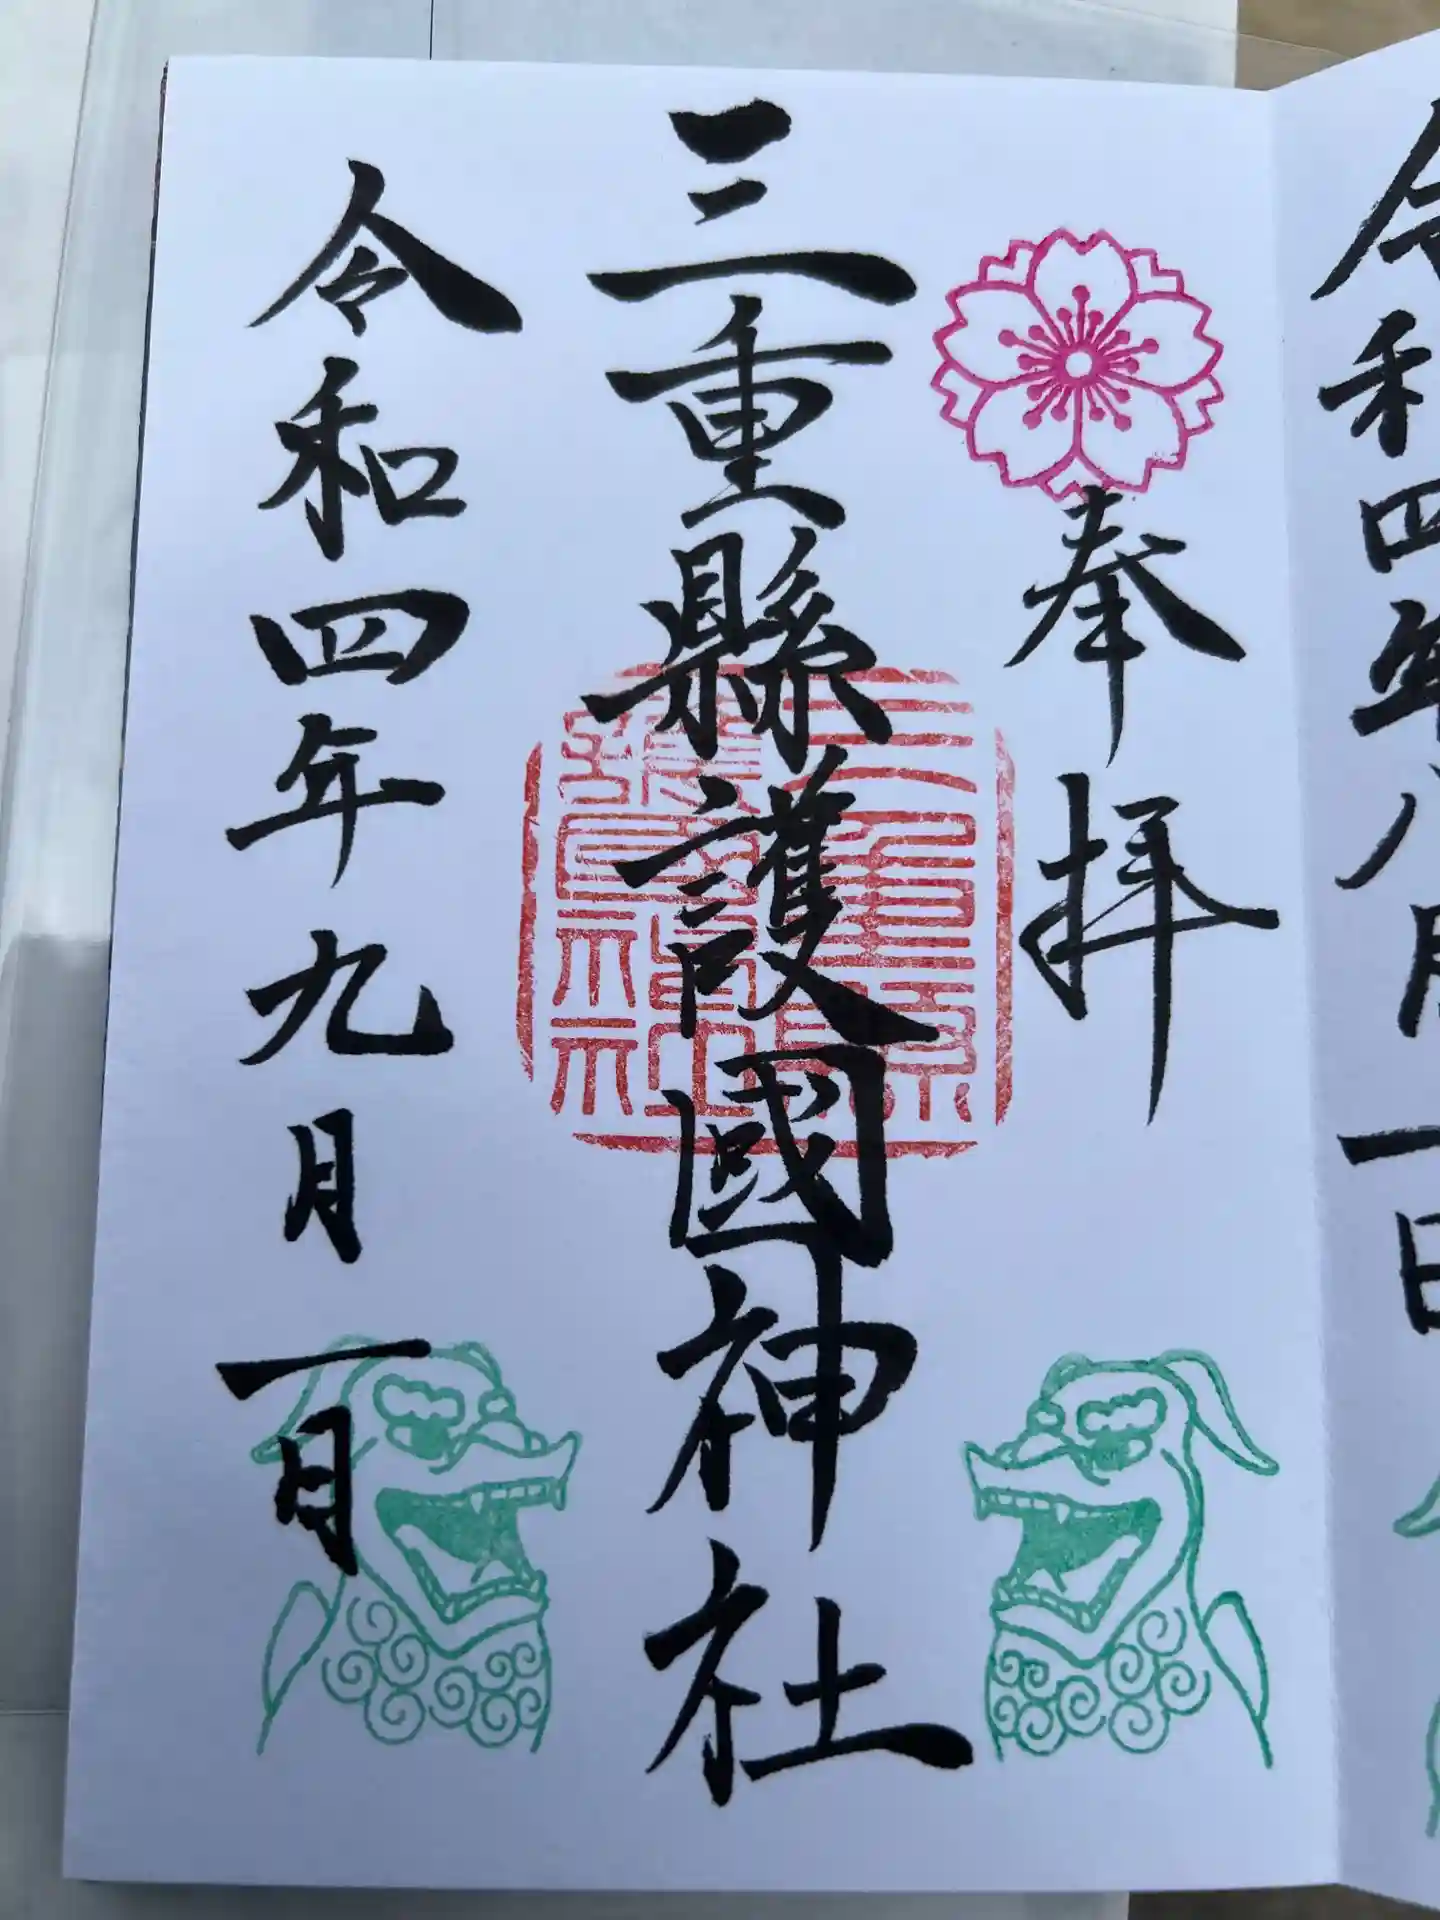 令和四年八月一日
奉拝
三重縣護國神社
令和四年九月一日